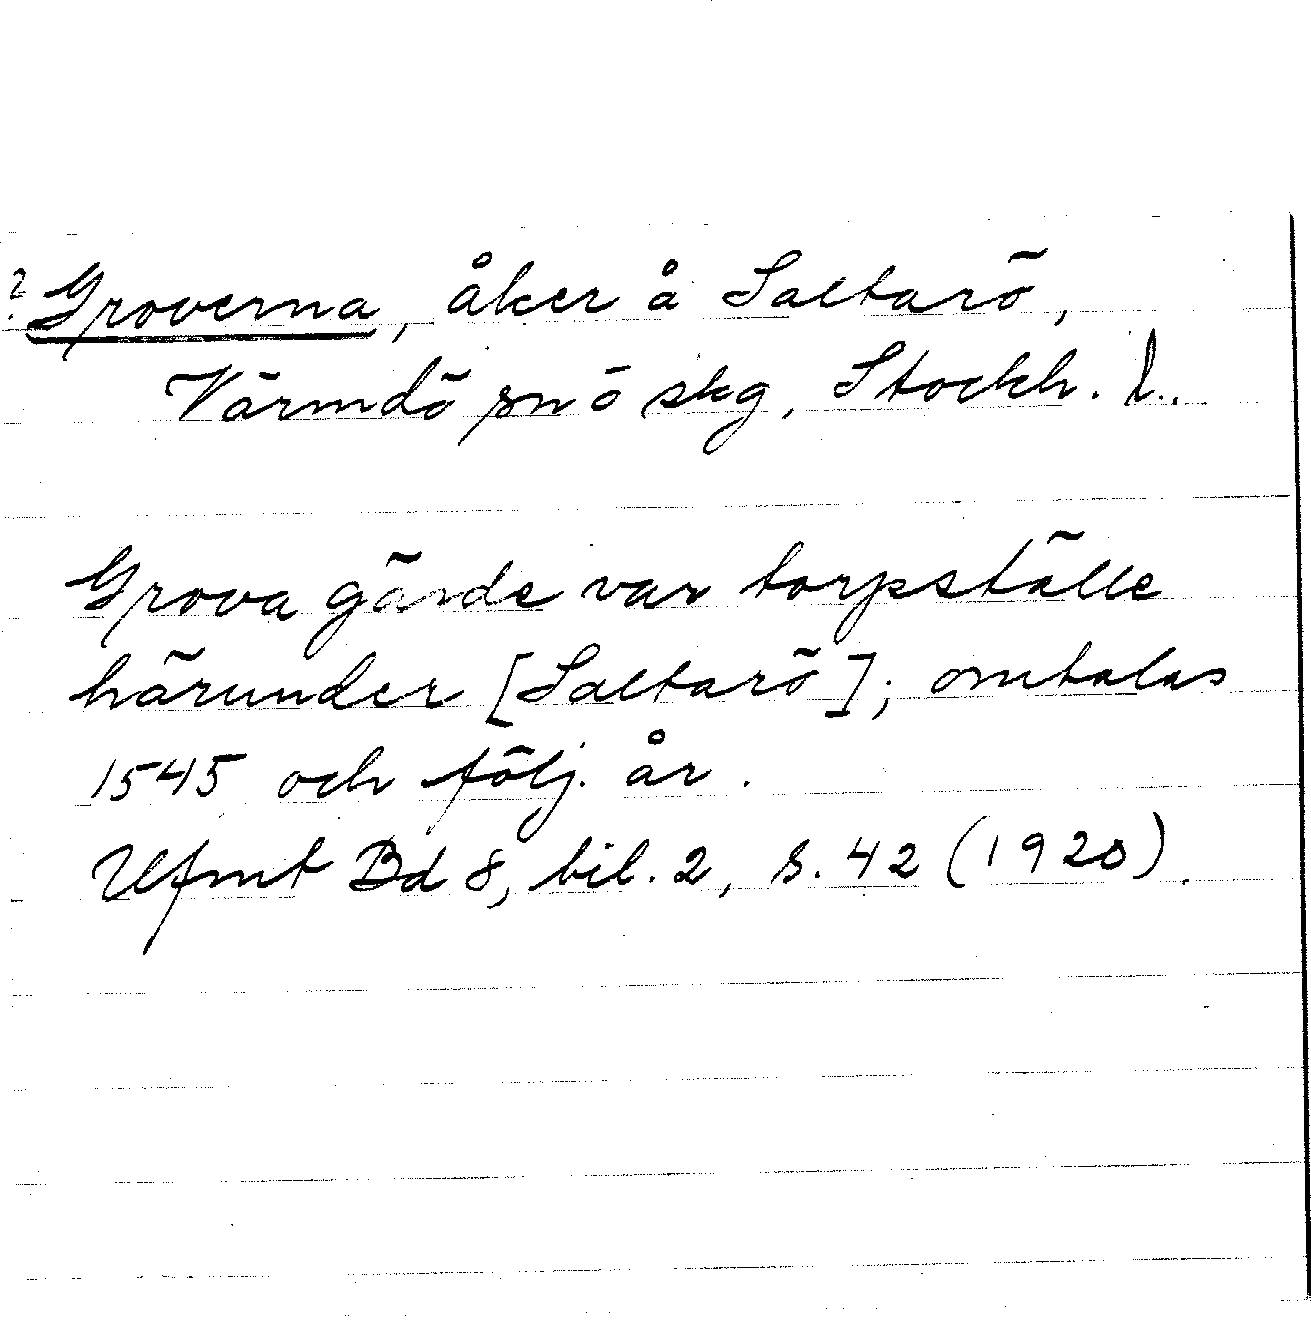 ? Groverna, åker å Saltarö,
Värmdö sn ö skg, Stockh. l.
Grova gärde var torpställe
härunder [Saltarö]; omtalas
1545 och följ. år.
Ufmt Bd 8, bil. 2, s. 42 (1920).